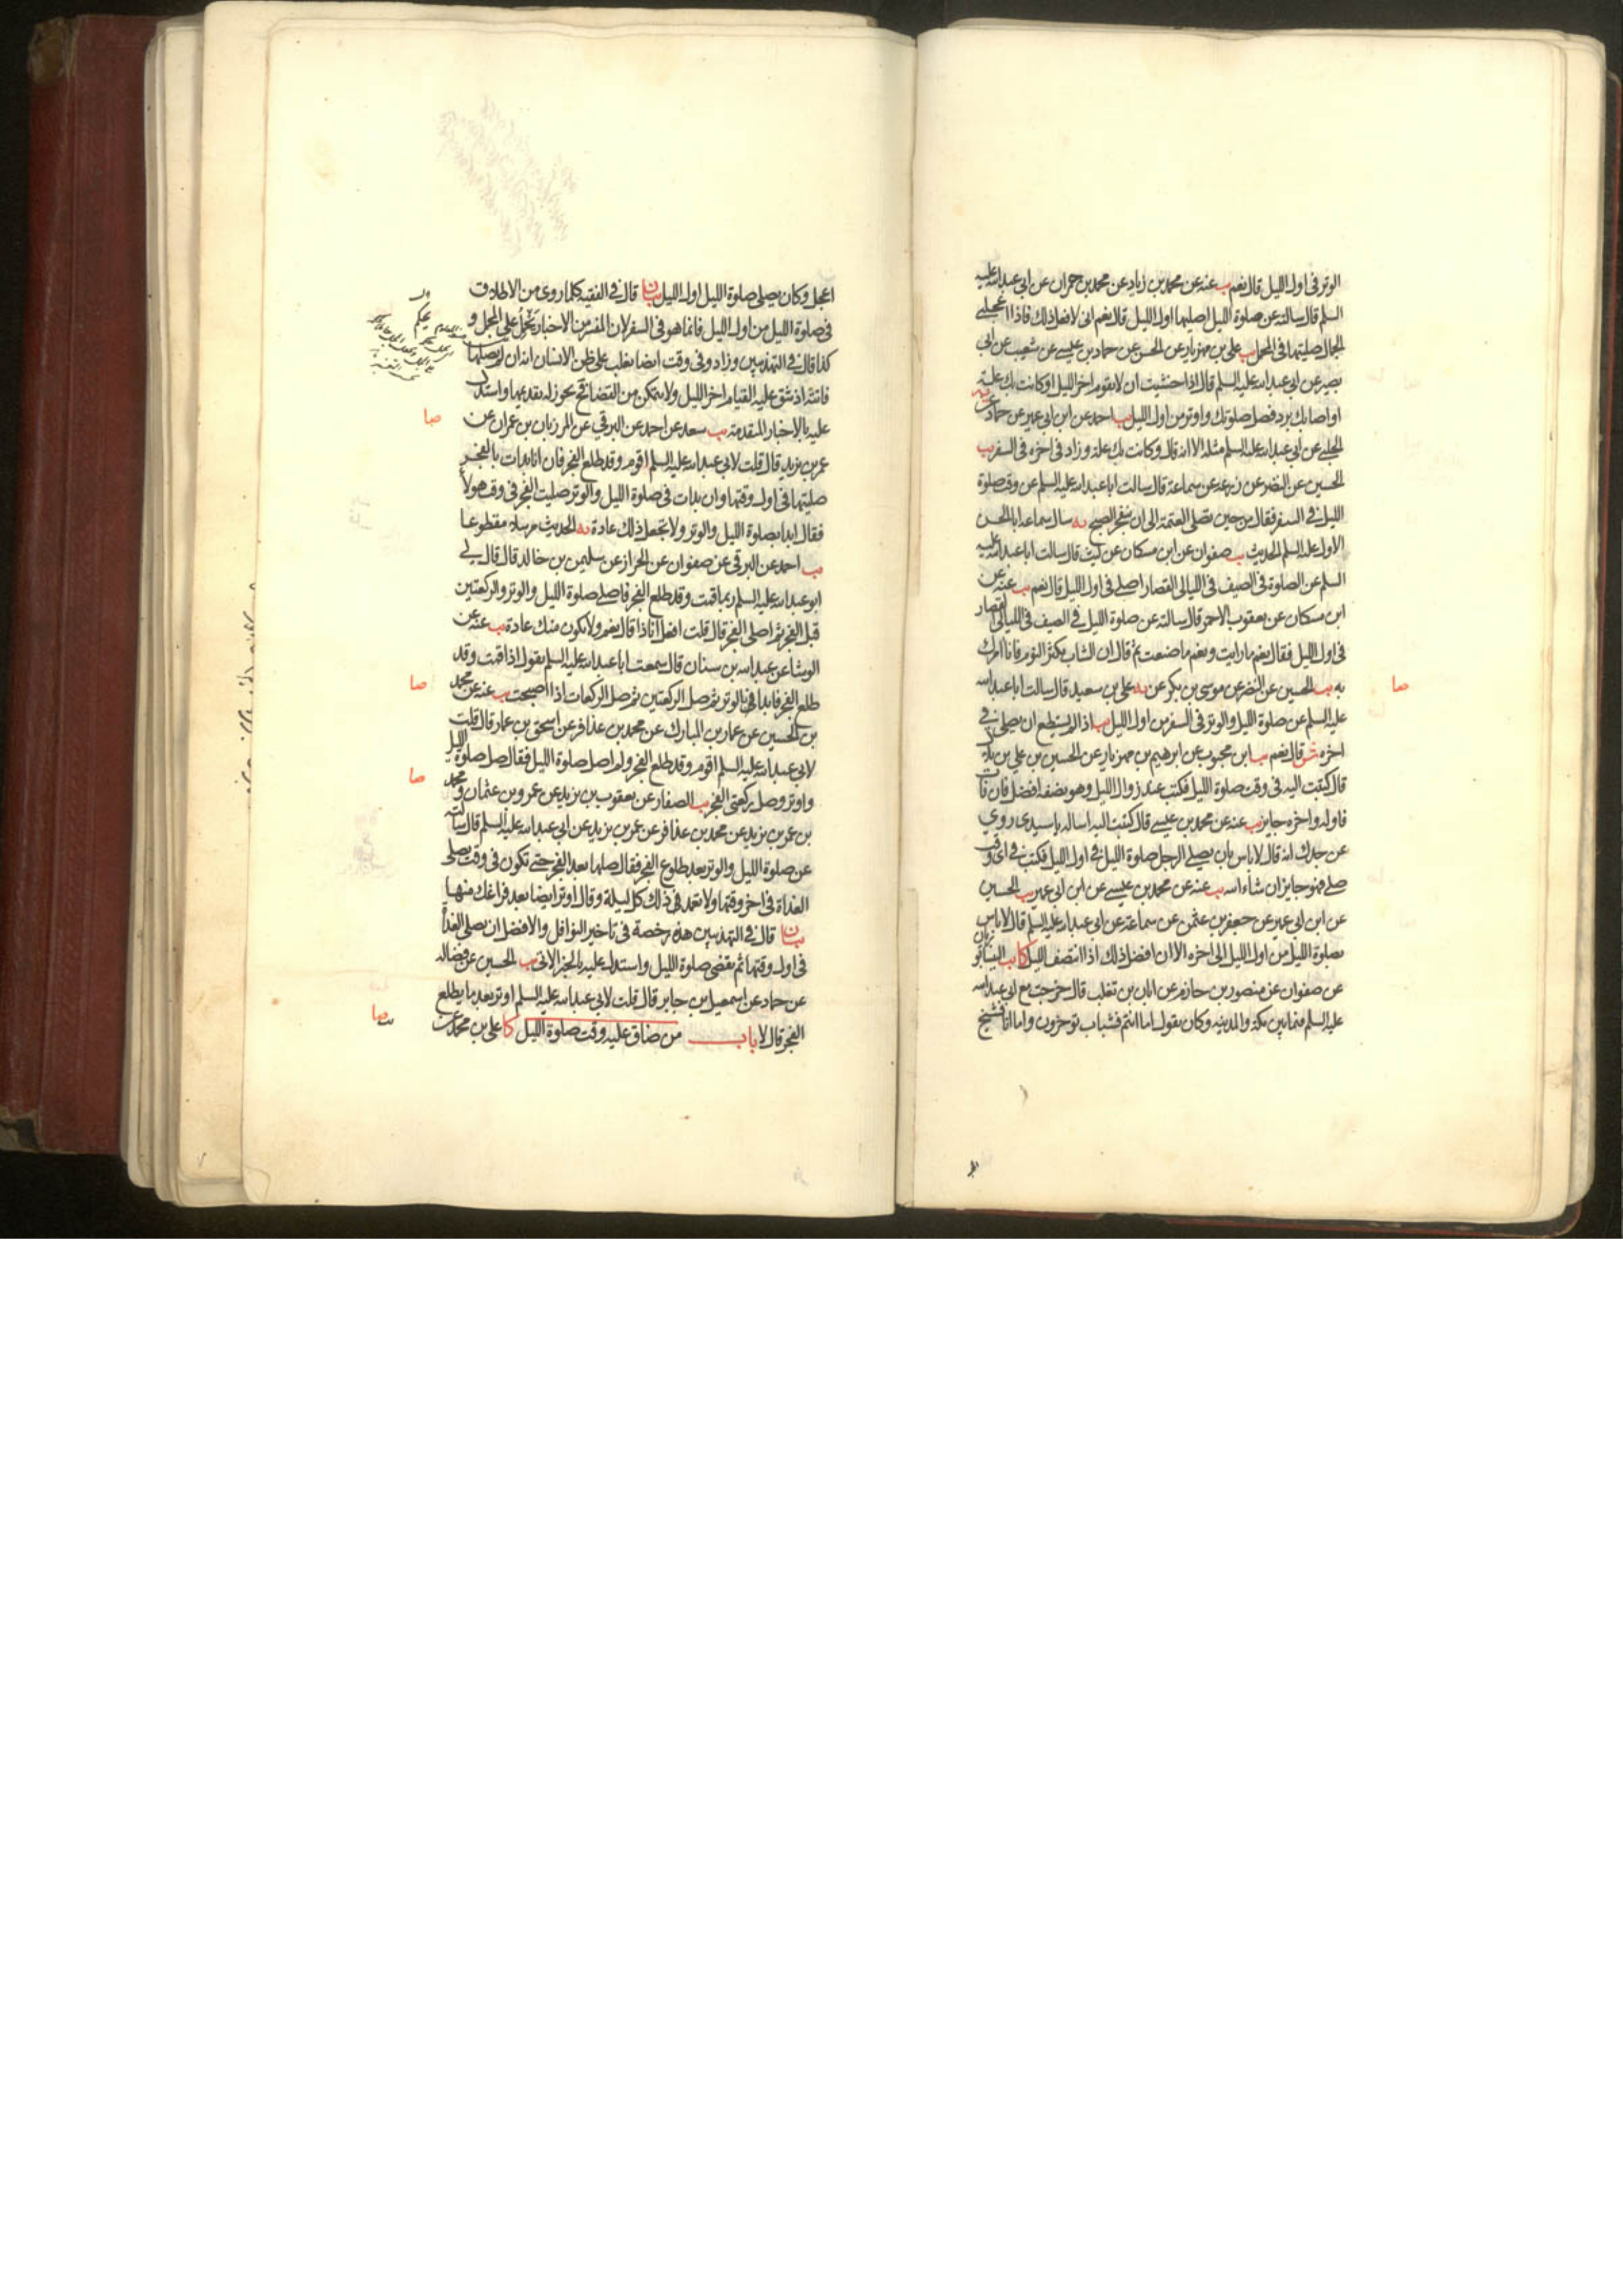 الوتر فى اول الليل قال نعم يب عنه عن محمد بن زياد عن محمد بن حمران عن ابى عبد الله عليه
السلم قال سالته عن صلوة الليل اصليها اول الليل قال نعم انى لافعل ذلك فاذا اعجلنى
الجمال صليتها فى المحمل يب على بن مهزيار عن الحسن عن حماد بن عيسى عن شعيب عن ابى
بصير عن ابى عبد الله عليه السلم قال اذا خشيت ان لا تقوم اخر الليل او كانت بك علة
او اصابك برد فصل صلوتك واوتر من اول الليل يب احمد عن ابن ابى عمير عن حماد عن
الحلبى عن ابى عبد الله عليه السلم مثله الا انه قال وكانت بك علة وزاد فى اخره فى السفر يب
الحسين عن النضر عن زرعة عن سماعة قال سالت ابا عبد الله عليه السلم عن وقت صلوة
الليل فى السفر فقال من حين تصلى العتمة الى ان ينفجر الصبح يه سال سماعة ابا الحسن
الاول عليه السلم الحديث يب صفوان عن ابن مسكان عن ليث قال سالت ابا عبد الله عليه
السلم عن الصلوة فى الصيف فى الليالى القصار اصلى فى اول الليل قال نعم يب عنه عن
ابن مسكان عن يعقوب الاحمر قال سالته عن صلوة الليل فى الصيف فى الليالى القصار
فى اول الليل فقال نعم ما رايت ونعم ما صنعت ثم قال ان الشاب يكثر النوم فانا امرك
به يب الحسين عن النضر عن موسى بن بكر عن يه على بن سعيد قال سالت ابا عبد الله
صا
عليه السلم عن صلوة الليل والوتر فى السفر من اول الليل يب اذا لم يستطع ان يصلى فى
اخره ش قال نعم يب ابن محبوب عن ابرهيم بن مهزيار عن الحسين بن على بن بلال
قال كتبت اليه فى وقت صلوة الليل فكتب عند زوال الليل وهو نصفه افضل فان فات
فاوله واخره جايز يب عنه عن محمد بن عيسى قال كتبت اليه اساله يا سيدى روى
عن جدك انه قال لا باس بان يصلى الرجل صلوة الليل فى اول الليل فكتب فى اى وقت
صلى فهو جايز ان شاء الله يب عنه عن محمد بن عيسى عن ابن ابى عمير يب الحسين
عن ابن ابى عمير عن جعفر بن عثمن عن سماعة عن ابى عبد الله عليه السلم قال لا باس
بصلوة الليل من اول الليل الى اخره الا ان افضل ذلك اذا انتصف الليل كا يب النيسابوريان
عن صفوان عن منصور بن حازم عن ابان بن تغلب قال خرجت مع ابى عبد الله
عليه السلم فيما بين مكة والمدينه وكان يقول اما انتم فشباب توخرون واما انا فشيخ
اعجل وكان يصلى صلوة الليل اول الليل بيان قال فى الفقيه كلما روى من الاطلاق
فى صلوة الليل من اول الليل فانما هو فى السفر لان المفسر من الاخبار يحكم على المجمل و
كذا قال فى التهذيبين وزاد وفى وقت ايضا يغلب على ظن الانسان انه ان لم يصلها
فاتته اذ شق عليه القيام اخر الليل ولا يتمكن من القضا فح يجوز له تقديمها واستدل
عليه بالاخبار المتقدمة يب سعد عن احمد عن البرقى عن المرزبان بن عمران عن
صا
عمر بن يزيد قال قلت لابى عبد الله عليه السلم اقوم وقد طلع الفجر فان انا بدات بالفجر
صليتها فى اول وقتها وان بدات فى صلوة الليل والوتر صليت الفجر فى وقت هولاء
فقال ابدا بصلوة الليل والوتر ولا تجعل ذلك عادة يه الحديث مرسلا مقطوعا
يب احمد عن البرقى عن صفوان عن الخراز عن سليمن بن خالد قال قال لى
ابو عبد الله عليه السلم ربما قمت وقد طلع الفجر فاصلى صلوة الليل والوتر والركعتين
قبل الفجر ثم اصلى الفجر قال قلت افعل انا ذا قال نعم ولا يكون منك عادة يب عنه عن
الوشا عن عبد الله بن سنان قال سمعت ابا عبد الله عليه السلم يقول اذا قمت وقد
طلع الفجر فابدا بالوتر ثم صل الركعتين ثم صل الركعات اذا اصبحت يب عنه عن محمد
صا
بن الحسين عن عمار بن المبارك عن محمد بن عذافر عن اسحق بن عمار قال قلت
لابى عبد الله عليه السلم اقوم وقد طلع الفجر ولم اصل صلوة الليل فقال صل صلوة الليل
واوتر وصل ركعتى الفجر يب الصفار عن يعقوب بن يزيد عن عمرو بن عثمان ومحمد
صا
بن عمر بن يزيد عن محمد بن عذافر عن عمر بن يزيد عن ابى عبد الله عليه السلم قال سالته
عن صلوة الليل والوتر بعد طلوع الفجر فقال صلها بعد الفجر حتى تكون فى وقت تصلى
الغداة فى اخر وقتها ولا تعمد فى ذلك كل ليلة وقال اوتر ايضا بعد فراغك منها
بيان قال فى التهذيبين هذه رخصة فى تاخير النوافل والافضل ان يصلى الغداة
فى اول وقتها ثم يقضى صلوة الليل واستدل عليه بالخبر الاتى يب الحسين عن فضاله
عن حماد عن اسمعيل بن جابر قال قلت لابى عبد الله عليه السلم اوتر بعد ما يطلع
الفجر قال لا باب من ضاق عليه وقت صلوة الليل كا على بن محمد عن
صا